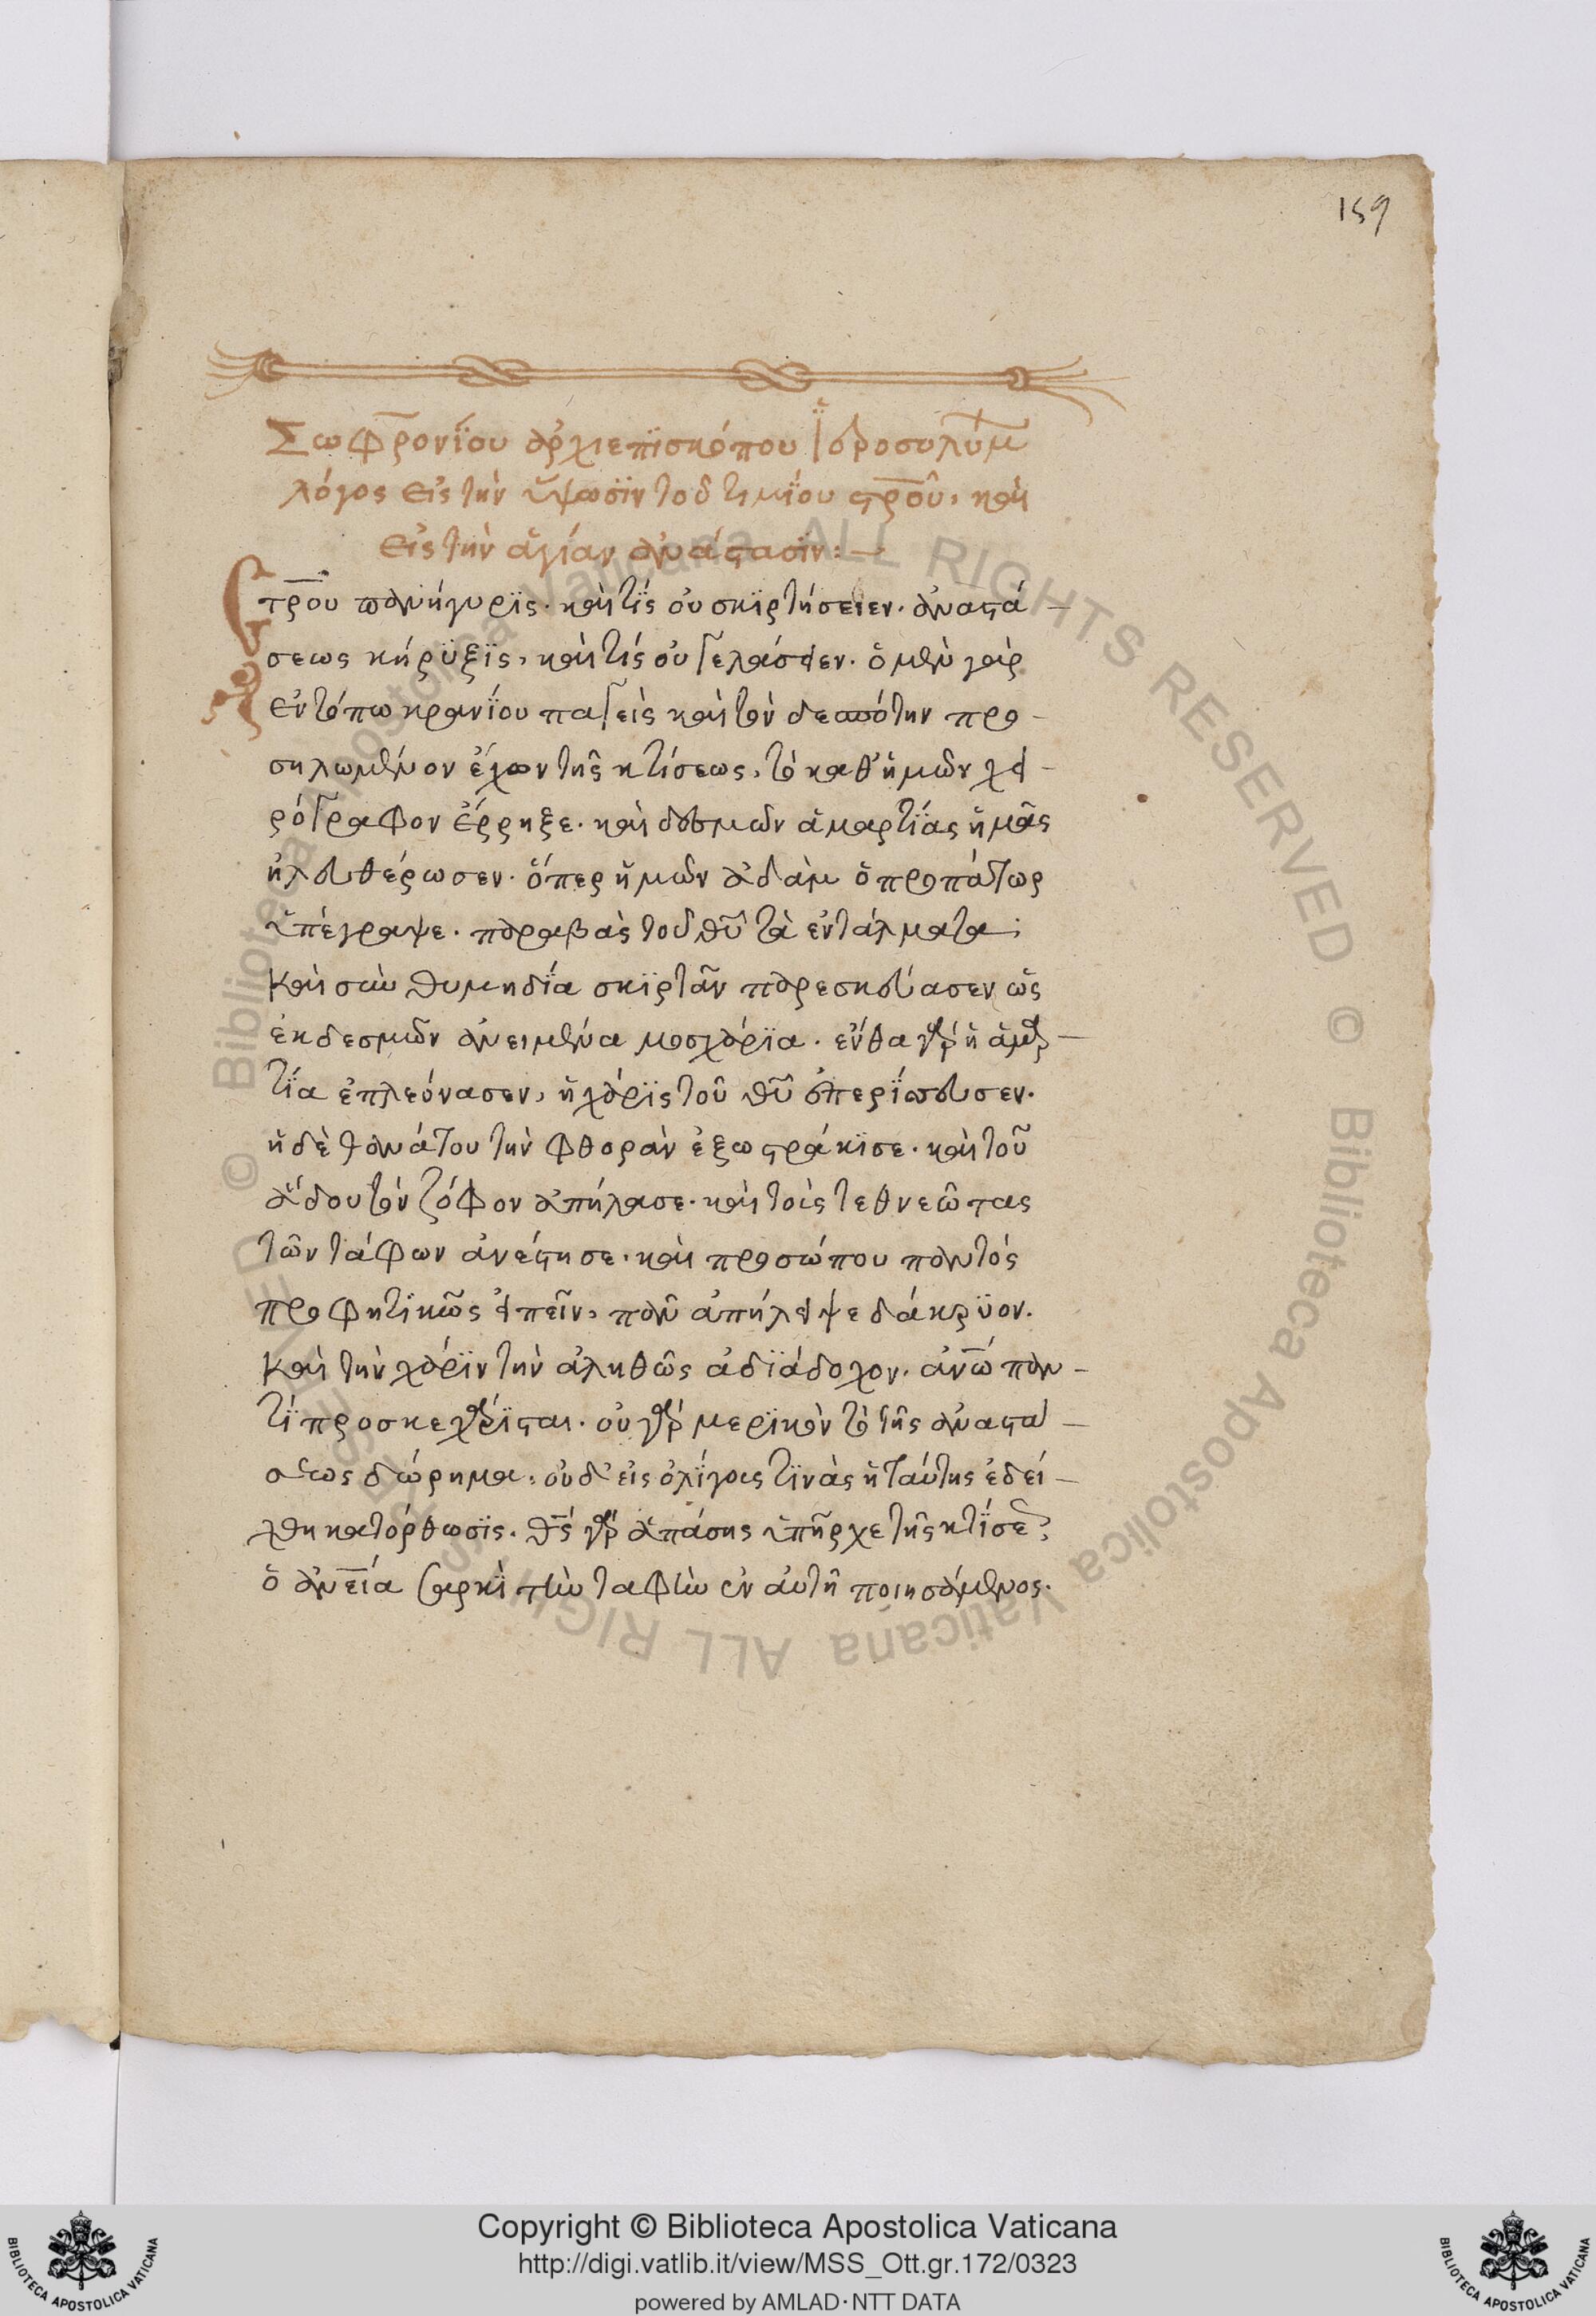 159
Σωφρονίου ἀρχιεπισκόπου Ἱεροσολύμ
λόγος εἰς τὴν ὕψωσιν τοῦ τιμίου στροῦ, καὶ
εἰς τὴν ἁγίαν ἀνάστασιν:—
Στροῦ πανήγυρις· καὶ τίς οὐ σκιρτήσειεν. ἀναστά-
σεως κήρυξις, καὶ τίς οὐ γελάσειεν. ὁ μὲν γὰρ
ἐν τόπω κρανίου παγεὶς καὶ τὸν δεσπότην προ-
σηλωμένον ἔχων τῆς κτίσεως, τὸ καθ' ἡμῶν χει-
ρόγραφον ἔρρηξε· καὶ δεσμῶν ἁμαρτίας ἡμᾶς
ἠλευθέρωσεν· ὅπερ ἡμῶν ἀδὰμ ὁ προπάτωρ
ὑπέγραψε· παραβὰς τοῦ θῦ τὰ ἐντάλματα·
καὶ σὺν θυμηδία σκιρτᾶν παρεσκεύασεν ὡς
ἐκ δεσμῶν ἀνειμένα μοσχάρια. ἔνθα γὰρ ἡ ἁμαρ-
τία ἐπλεόνασεν, ἡ χάρις τοῦ θῦ ὑπερίσσευσεν.
ἡ δὲ θανάτου τὴν φθορὰν ἐξωστράκισε· καὶ τοῦ
ἅδου τὸν ζόφον ἀπήλασε· καὶ τοὶς τεθνεῶτας
τῶν τάφων ἀνέστησε· καὶ προσώπου παντὸς
προφητικῶς εἰπεῖν, πᾶν ἀπήλειψε δάκρυον.
καὶ τὴν χάριν τὴν ἀληθῶς ἀδιάδοχον. ἀνῶ παν-
τὶ προσκεχάρισται. οὐ γὰρ μερικὸν τὸ τῆς ἀναστά-
σεως δώρημα, οὐδ' εἰς ὀλίγοις τινὰς ἡ ταύτης ἐδεί-
χθη κατόρθωσις. θς γὰρ ἁπάσης ὑπῆρχε τῆς κτίσεως
ὁ σαρκὶ τὴν ταφὴν ἐν αὐτῆ ποιησάμενος.
Copyright © Biblioteca Apostolica Vaticana
http://digi.vatlib.it/view/MSS_Ott.gr.172/0323
powered by AMLAD·NTT DATA
© Biblioteca Apostolica Vaticana ALL RIGHTS RESERVED
© Biblioteca Apostolica Vaticana ALL RIGHTS RESERVED
BIBLIOTECA APOSTOLICA VATICANA
BIBLIOTECA APOSTOLICA VATICANA